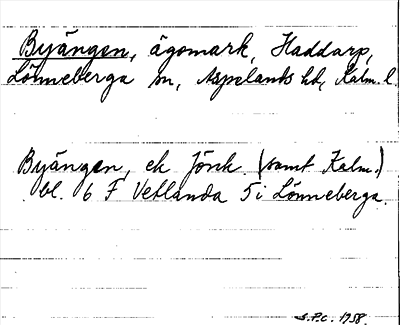 Byängen, ägomark, Haddarp,
Lönneberga sn, Aspelands hd, Kalm. l.
Byängen, ek Jönk. (samt Kalm.)
bl. 6 F Vetlanda 5 i Lönneberga.
S.P.C. 1958.